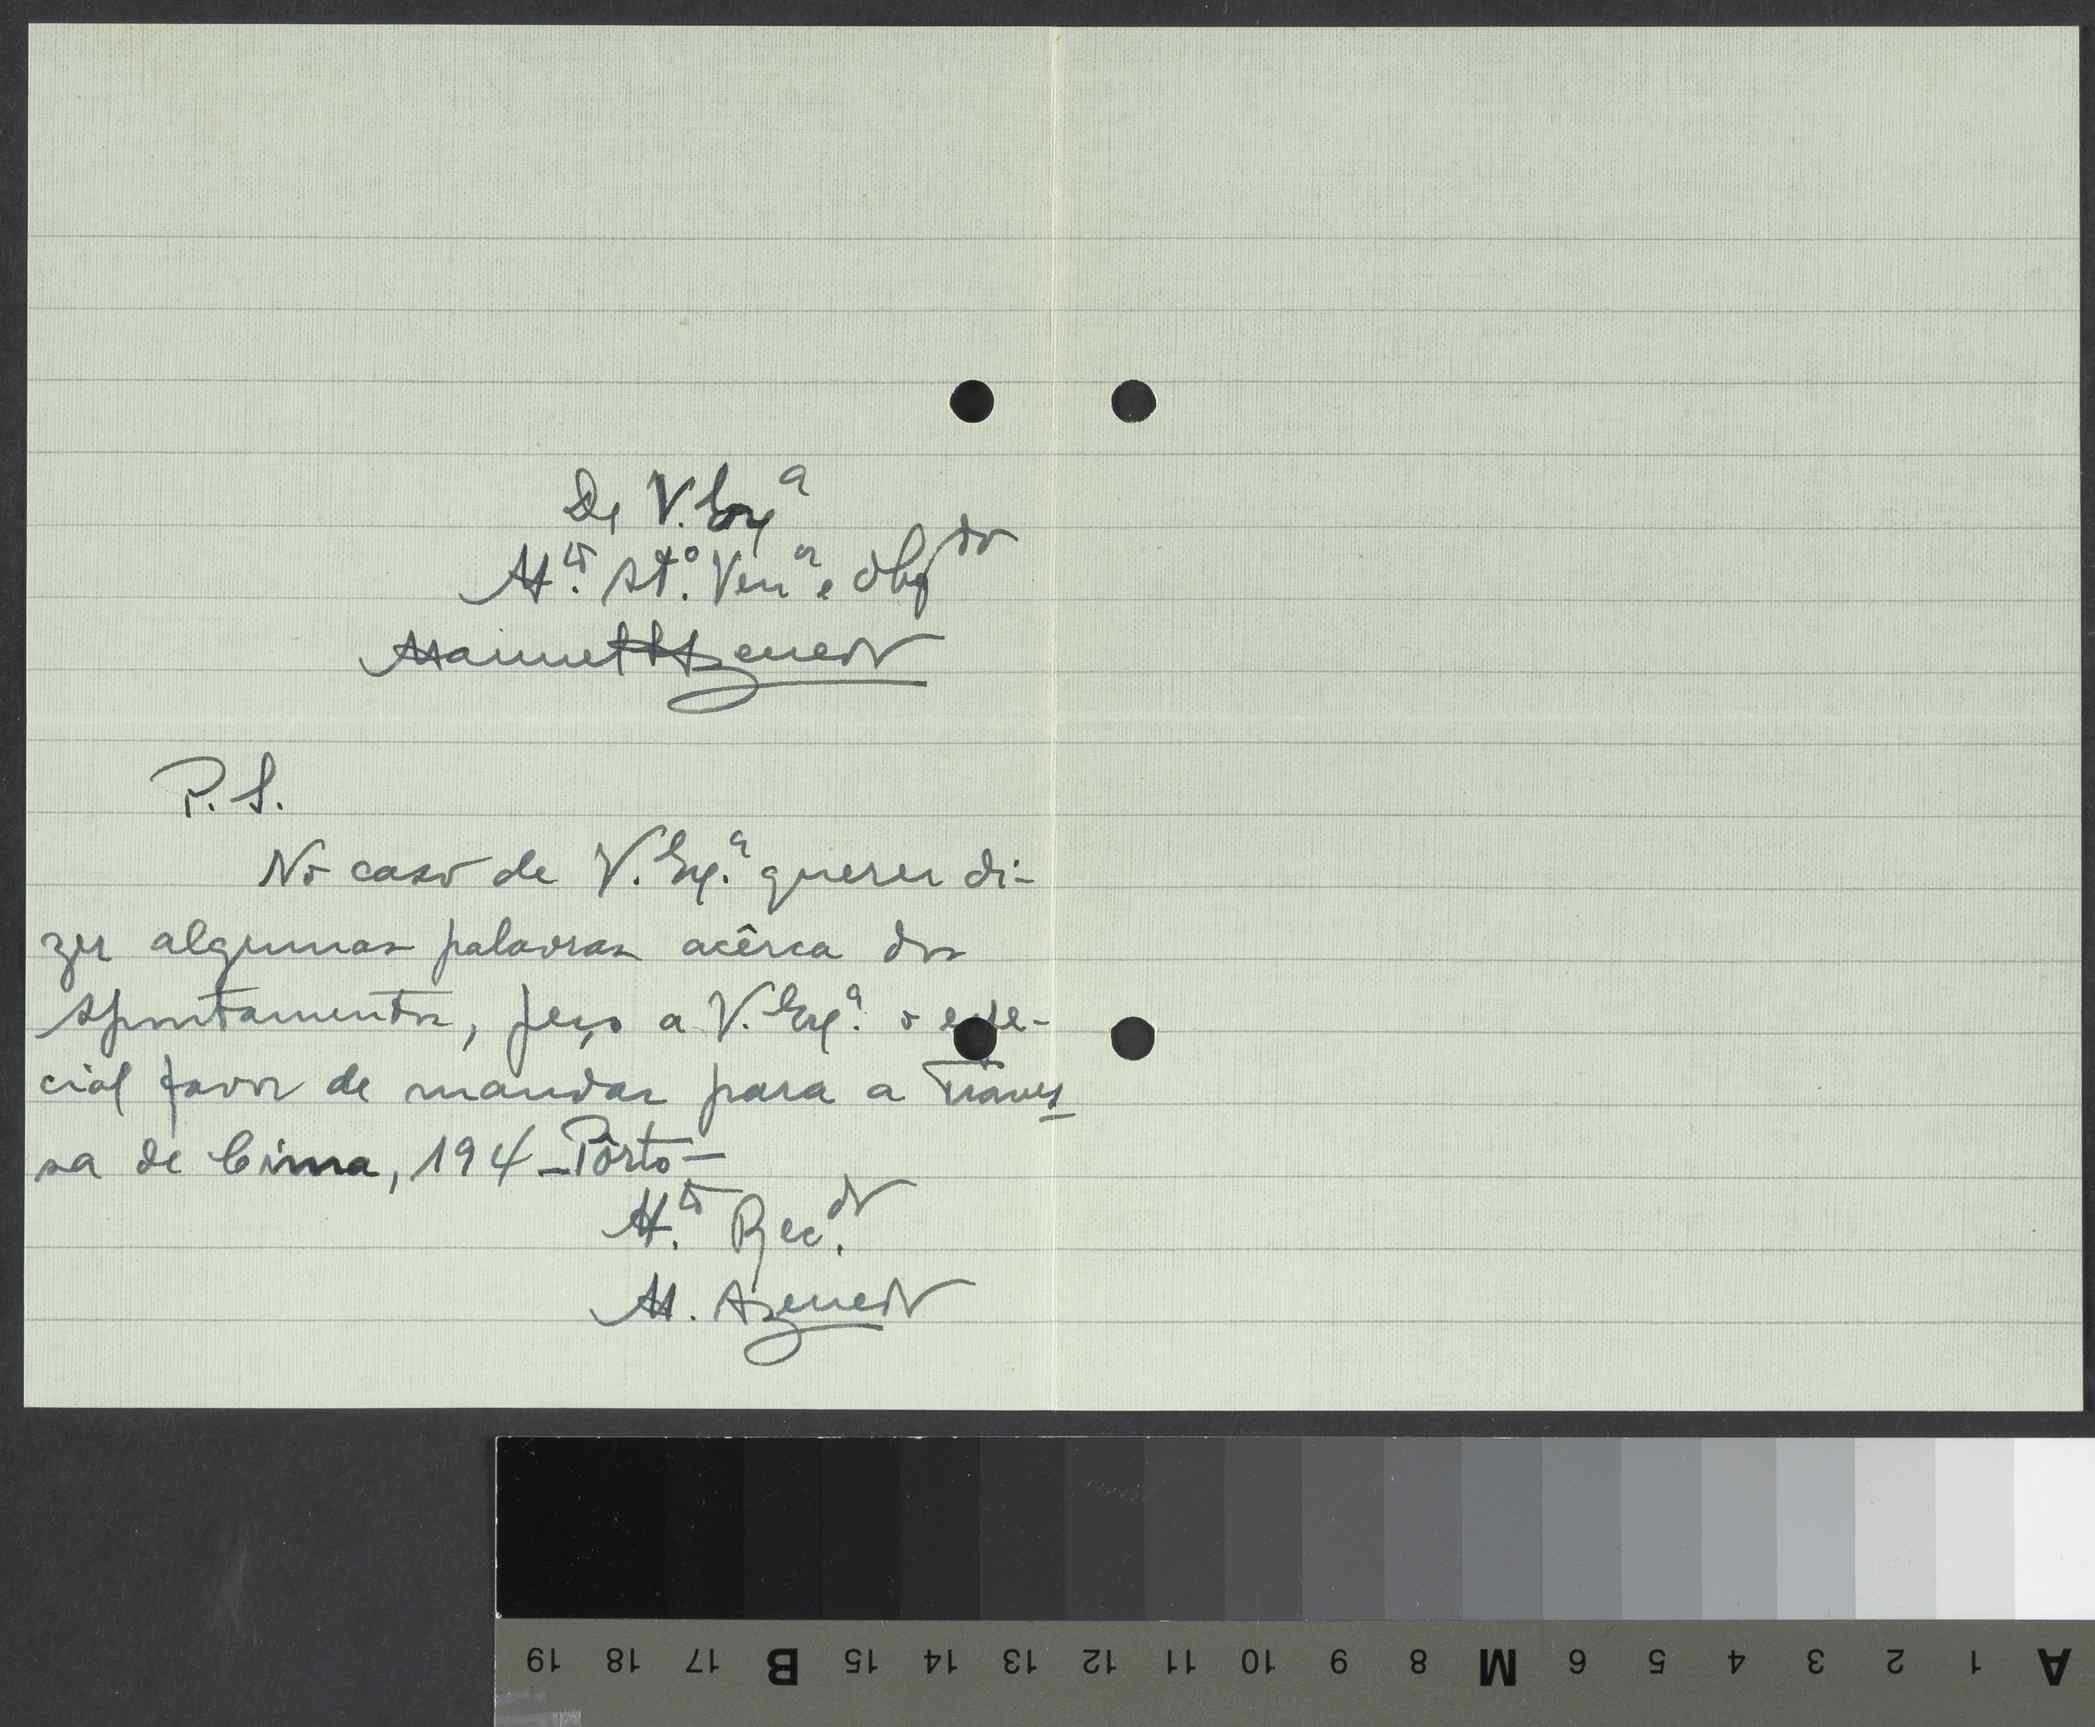 De V. Exª
Mto. Atº. Venor e Obgdo
Manuel Azevedo
P.S.
No caso de V. Exª. querer di-
zer algumas palavras acêrca dos
Apontamentos, peço a V. Exª. o espe-
cial favor de mandar para a Traves
sa de Cima, 194 - Pôrto -
Mto. Rec.do
M. Azevedo
19 18 17 B 15 14 13 12 11 10 9 8 M 6 5 4 3 2 1 A